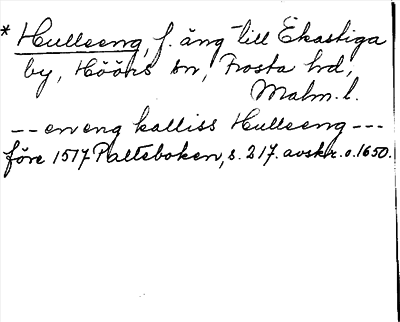 * Hulleeng, f. äng till Ekastiga
by, Höörs sn, Frosta hd,
Malm. l.
-- en eng kalliss Hulleeng ---
före 1517 Palteboken, s. 217. avskr. o. 1650.